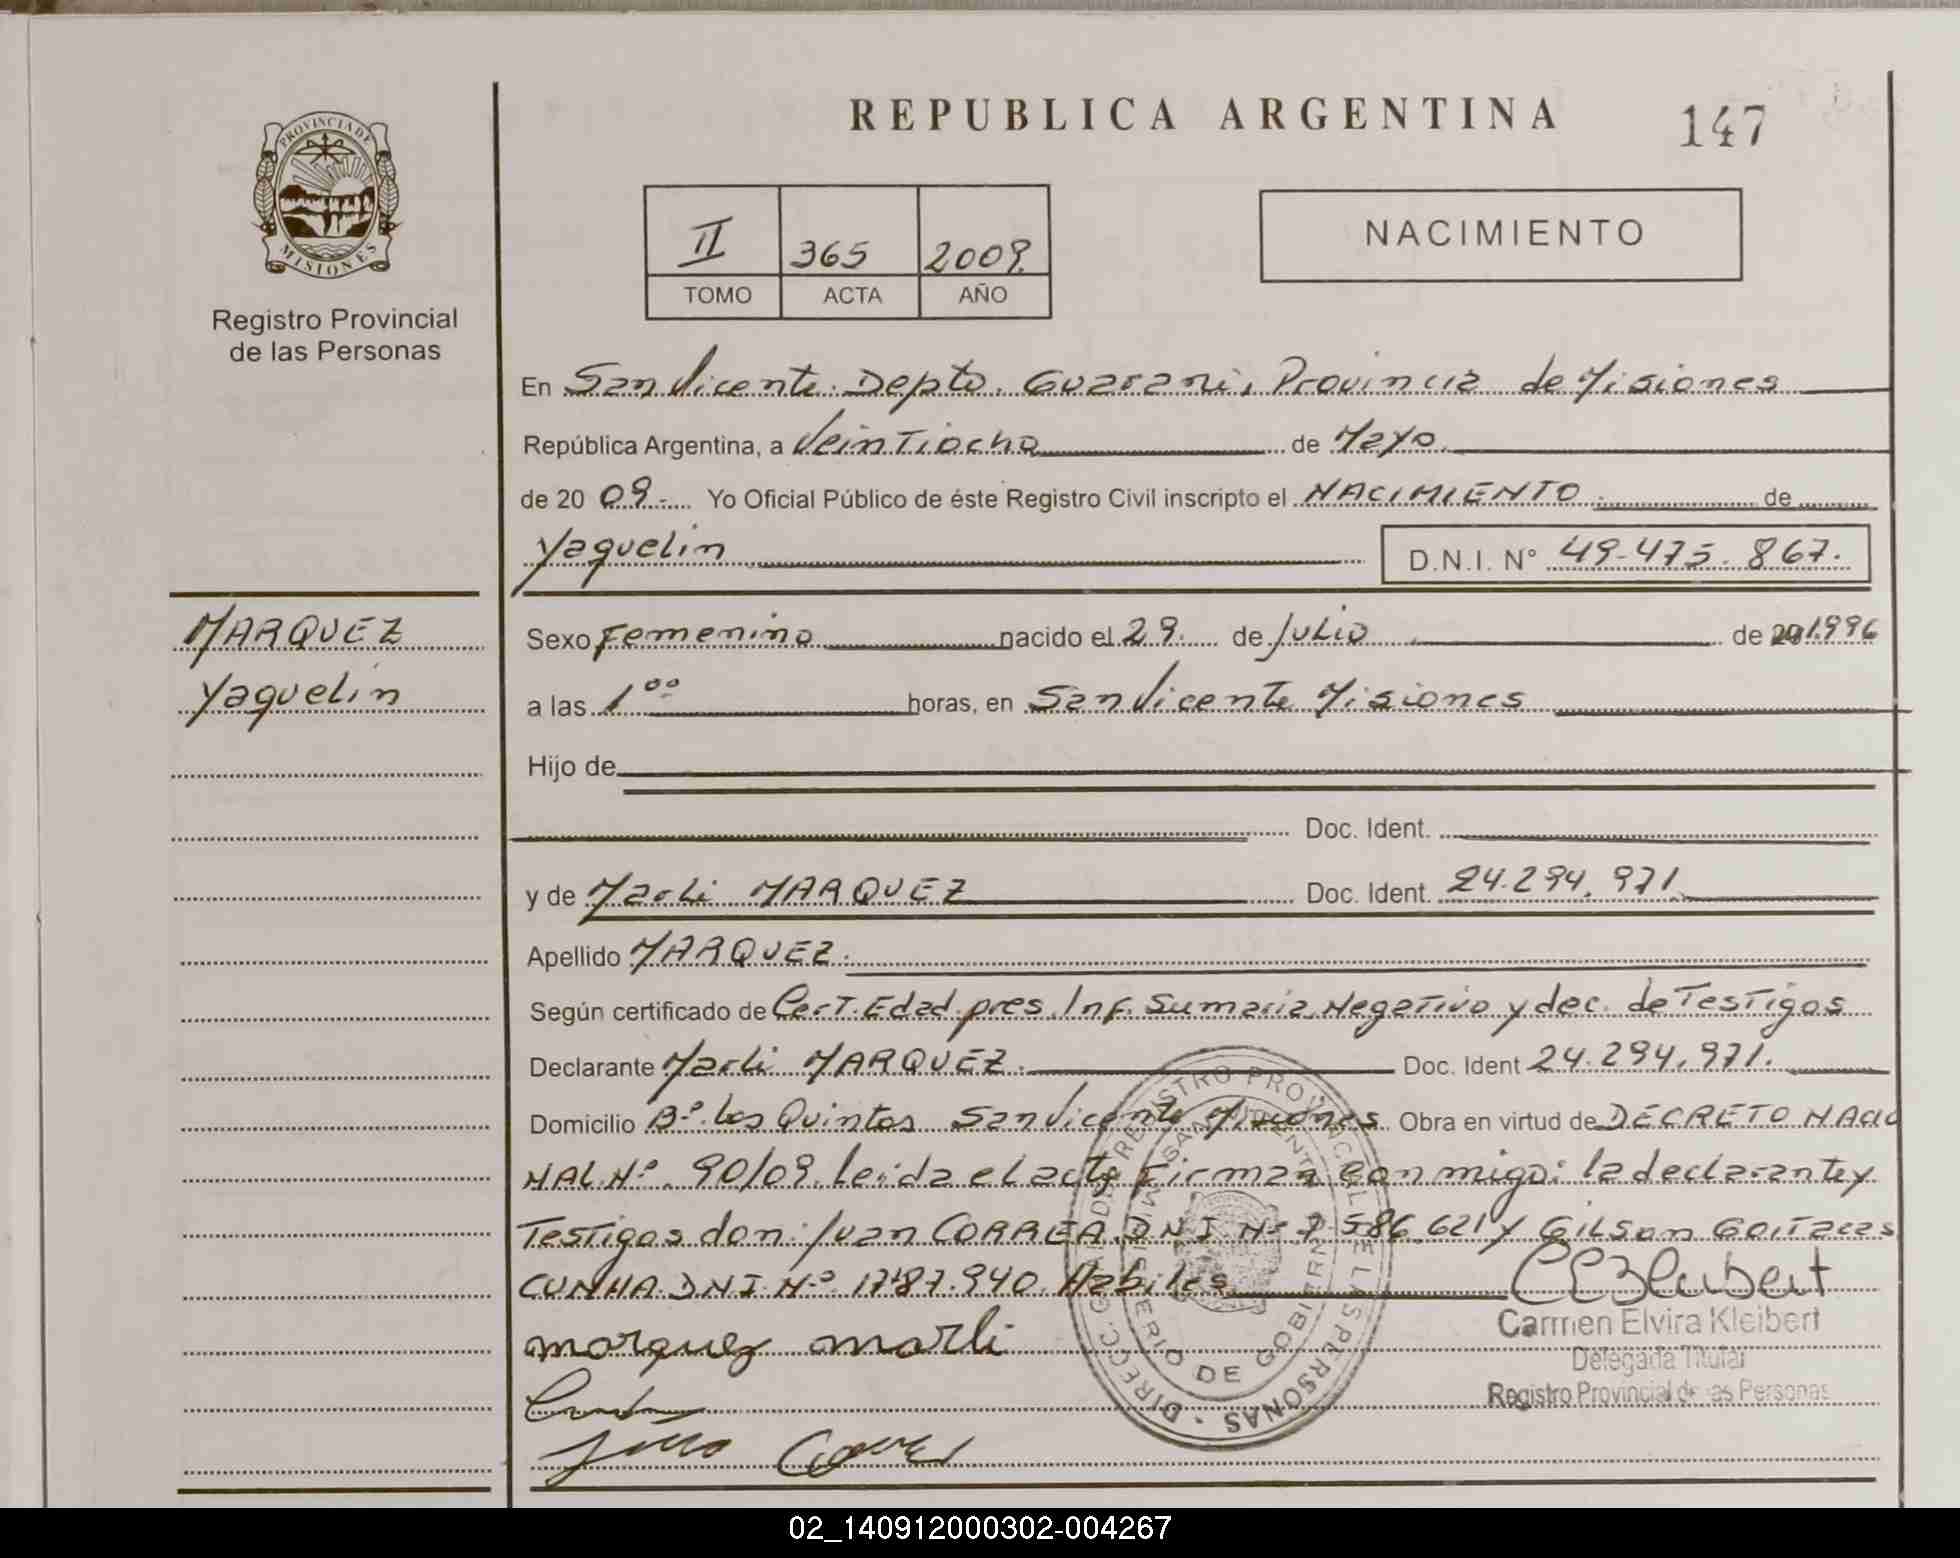 REPUBLICA ARGENTINA
147
PROVINCIA DE
MISIONES
Registro Provincial
de las Personas
II 365 2009.
TOMO ACTA AÑO
NACIMIENTO
En San Vicente. Depto. Guarani, Provincia de Misiones
República Argentina, a Veintiocho de Mayo.
de 20 09.- Yo Oficial Público de éste Registro Civil inscripto el NACIMIENTO. de
Yaquelin D.N.I. N° 49-475.867.
MARQUEZ
Yaquelin
Sexo Femenino nacido el 29. de Julio de 1996
a las 1°° horas, en San Vicente Misiones
Hijo de
Doc. Ident.
y de Marli MARQUEZ Doc. Ident. 24.294.971
Apellido MARQUEZ.
Según certificado de Cert. Edad pres. Inf. Sumaria, Negativo y dec. de Testigos
Declarante Marli MARQUEZ. Doc. Ident 24.294.971.
Domicilio B°. Los Quintos San Vicente Misiones. Obra en virtud de DECRETO NACIO
NAL.N°. 90/09. leida el acta Firman conmigo: la declarante y
Testigos don: Juan CORREA.DNI N° 7.586.621 y Gilson
CUNHA.DNI.N.° Habiles
morquez marli
CEKleibert
Carmen Elvira Kleibert
Delegada Titular
Registro Provincial de las Personas
DIRECC. GRAL DE REGISTRO PROVINCIAL DE LAS PERSONAS
MINISTERIO DE GOBIERNO
SAN VICENTE
02_140912000302-004267